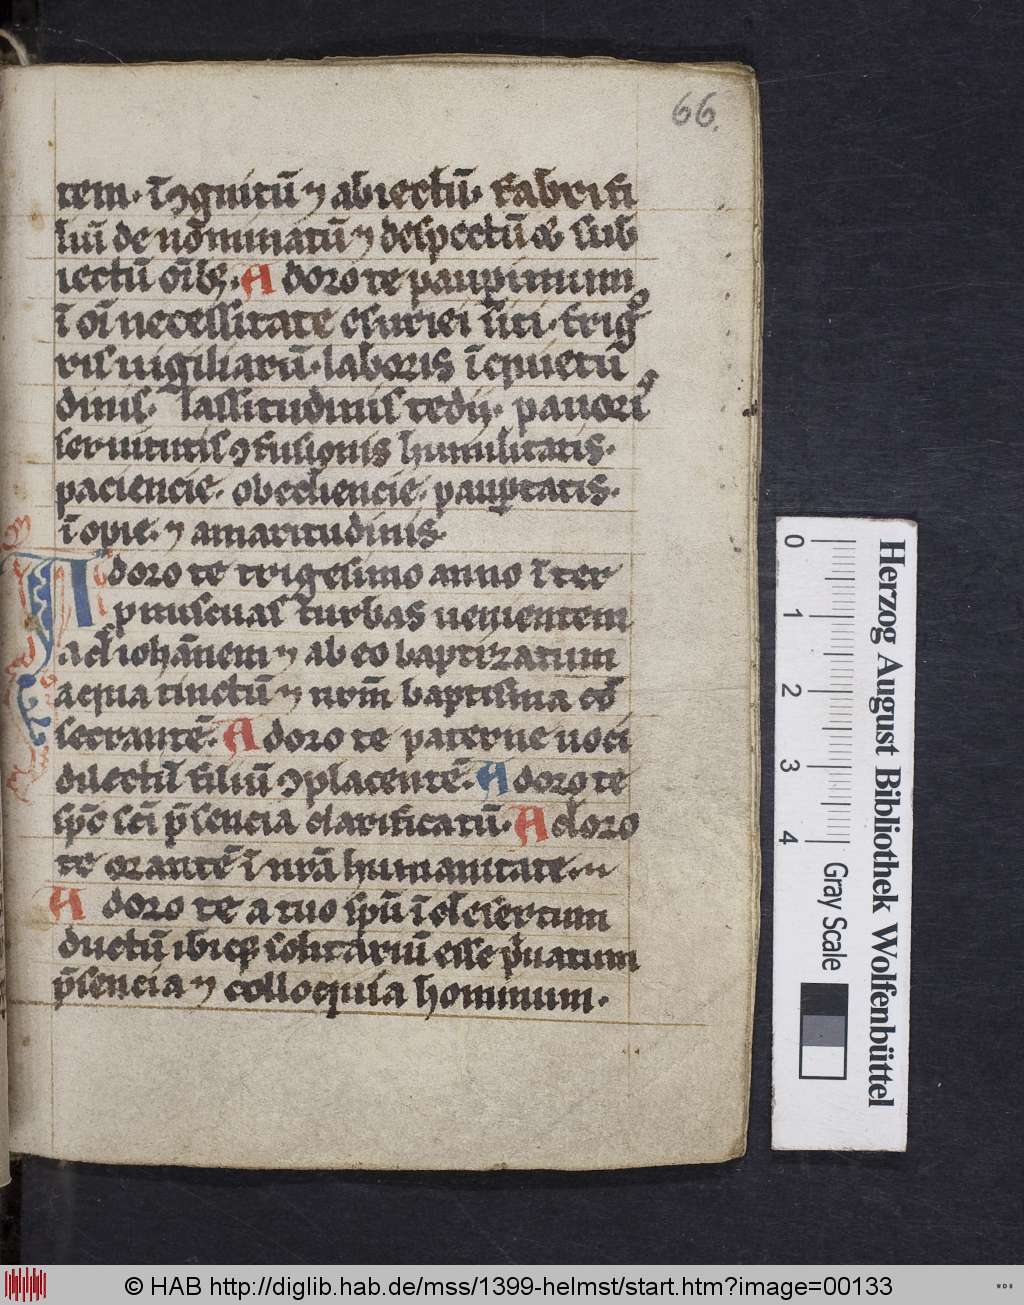 66.
tem· īꝯgnitū ⁊ abiectū· fabri fi
liū de nōminatū ⁊ despectū oībꝫ sub
iectū oībꝫ· Adoro te pauꝑrimum
ī oī necessitate esuriei siti· frigꝰ
ris uigiliarū· laboris īquietu
dinis· lassitudinis tedij· pauoris
seruitutis ꝯfusionis humilitatis·
paciencie· obediencie· pauꝑtatis·
īopie· ⁊ amaritudinis·
Adoro te trigesimo anno īter
pmiscuas turbas uenientem
ad iohānem ⁊ ab eo baptizatum
aequa tinctū ⁊ nr̄m baptisma cō
secrantē· Adoro te paterne uoci
dilectū filiū ꝯplacentē· Adoro te
sp̄c sc̄i p̄sencia clarificatū· Adoro
te orantē ī nr̄a humanitate·
Adoro te a tuo sp̄u ī desertum
ductū ibiqꝫ solitariū esse p̄uatum
p̄sencia ⁊ colloquia hominum·
Herzog August Bibliothek Wolfenbüttel
0 1 2 3 4
Gray Scale
© HAB http://diglib.hab.de/mss/1399-helmst/start.htm?image=00133